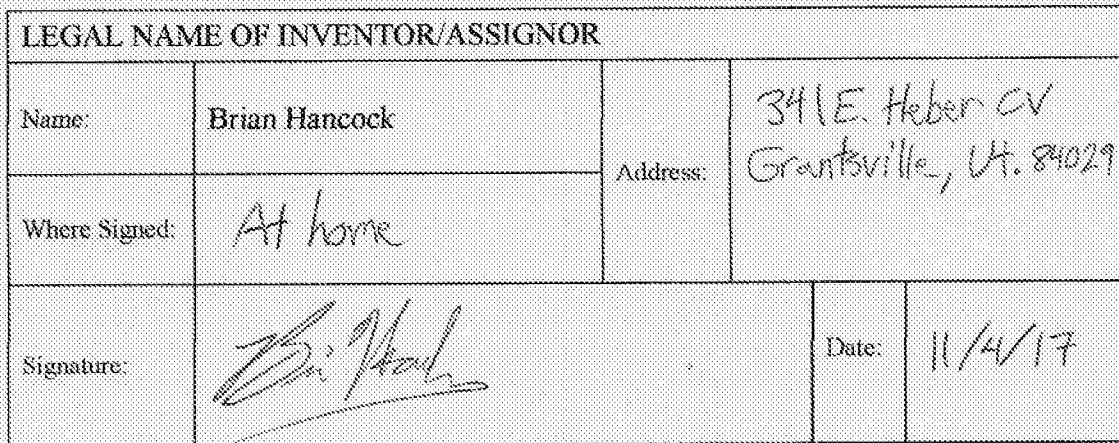 LEGAL NAME OF INVENTOR/ASSIGNOR
Name: Brian Hancock
Address: 341 E. Heber CV
Grantsville, Ut. 84029
Where Signed: At home
Signature:
Date: 11/4/17